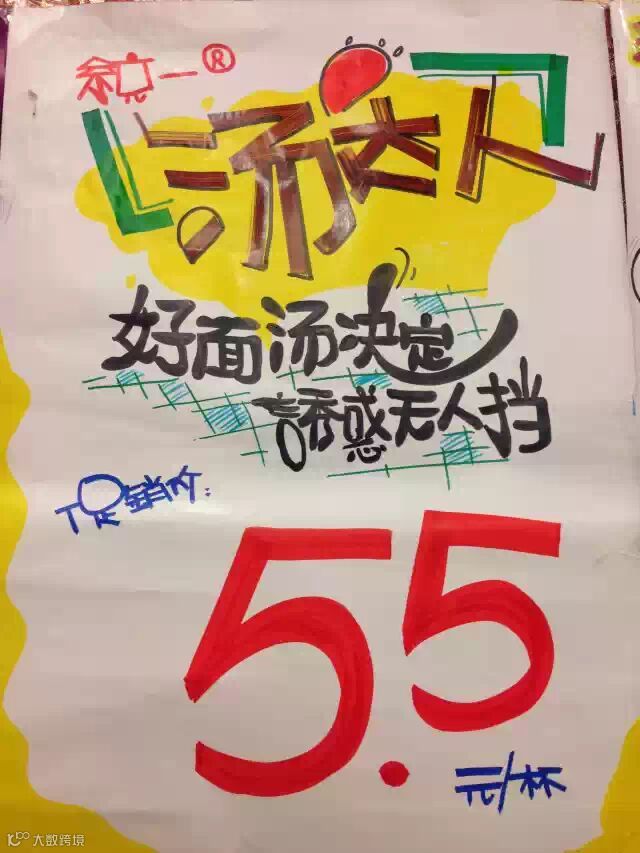 统一®
汤达人
好面汤决定
誘惑无人挡
促销价:
5.5
元/杯
大数跨境